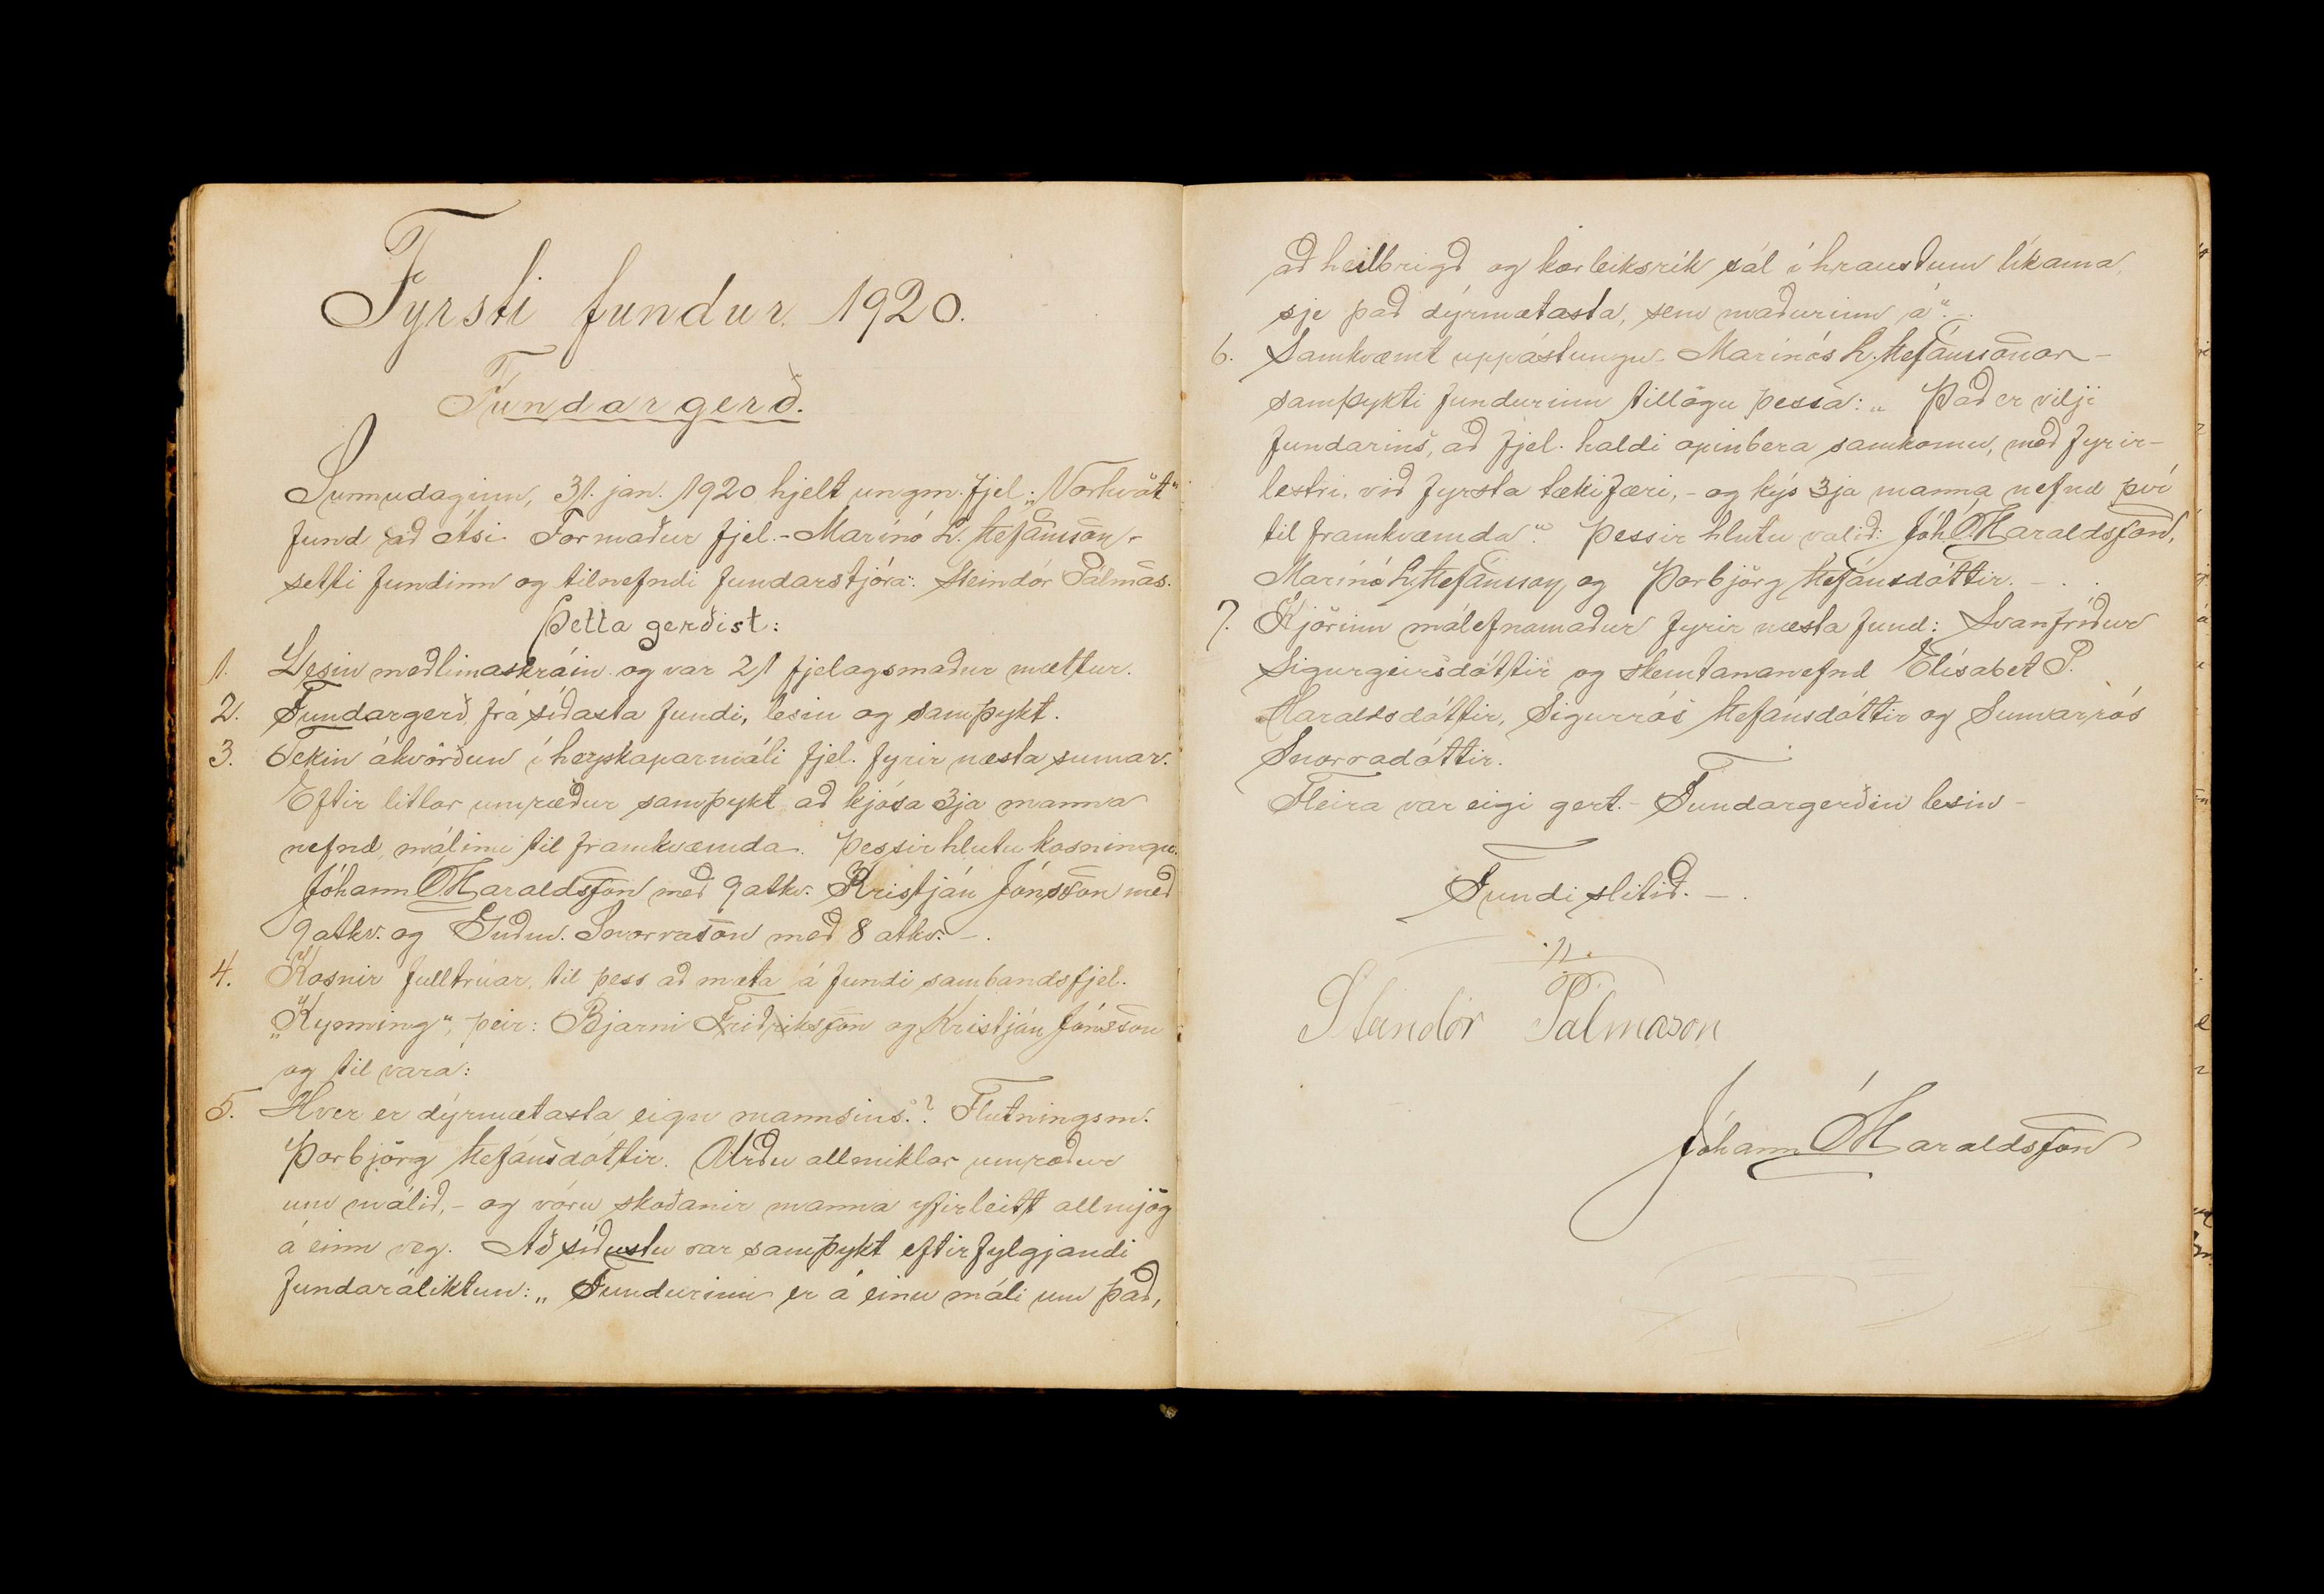 Fyrsti fundur 1920.
Fundargerð.
Sunnudaginn, 31. jan. 1920 hjelt ungm. fjel. „Vorhvöt"
fund að Ási. Formaður fjel. - Marinó L. Stefánsson -
setti fundinn og tilnefndi fundarstjóra: Steindór Pálmas.
Þetta gerðist:
1. Lesin meðlimaskráin og var 21 fjelagsmaður mættur.
2. Fundargerð frá síðasta fundi, lesin og samþykt.
3. Tekin ákvörðun í heyskaparmáli fjel. fyrir næsta sumar.
Eftir litlar umræður samþykt að kjósa 3ja manna
nefnd, málinu til framkvæmda. Þessir hlutu kosningu.
Jóhann Ó Haraldsson með 9 atkv. Kristján Jónsson með
9 atkv. og Guðm. Snorrason með 8 atkv. -.
4. Kosnir fulltrúar, til þess að mæta á fundi sambandsfjel.
„Kynning", þeir: Bjarni Friðriksson og Kristján Jónsson
og til vara:
5. Hver er dýrmætasta eign mannsins? Flutningsm.
Þorbjörg Stefánsdóttir. Urðu allmiklar umræður
um málið, - og vóru skoðanir manna yfirleitt allmjög
á einn veg. Að síðustu var samþykt eftirfylgjandi
fundarályktun: „Fundurinn er á einu máli um það,
að heilbrigð og kærleiksrík sál í hraustum líkama,
sje það dýrmætasta, sem maðurinn á".
6. Samkvæmt uppástungu - Marinós L. Stefánssonar -
samþykti fundurinn tillögu þessa: „Það er vilji
fundarins, að fjel. haldi opinbera samkomu, með fyrir-
lestri, við fyrsta tækifæri, - og kýs 3ja manna nefnd því
til framkvæmda". Þessir hlutu valið: Jóh. Ó. Haraldsson,
Marinó L. Stefánsson, og Þorbjörg Stefánsdóttir. - . .
7. Kjörinn málefnamaður fyrir næsta fund: Svanfríður
Sigurgeirsdóttir og skemtananefnd Elísabet P.
Haraldsdóttir, Sigurrós Stefánsdóttir og Sumarrós
Snorradóttir.
Fleira var eigi gert. - Fundargerðin lesin -
Fundi slitið. - .
Steindór Pálmason
Jóhann Ó Haraldsson